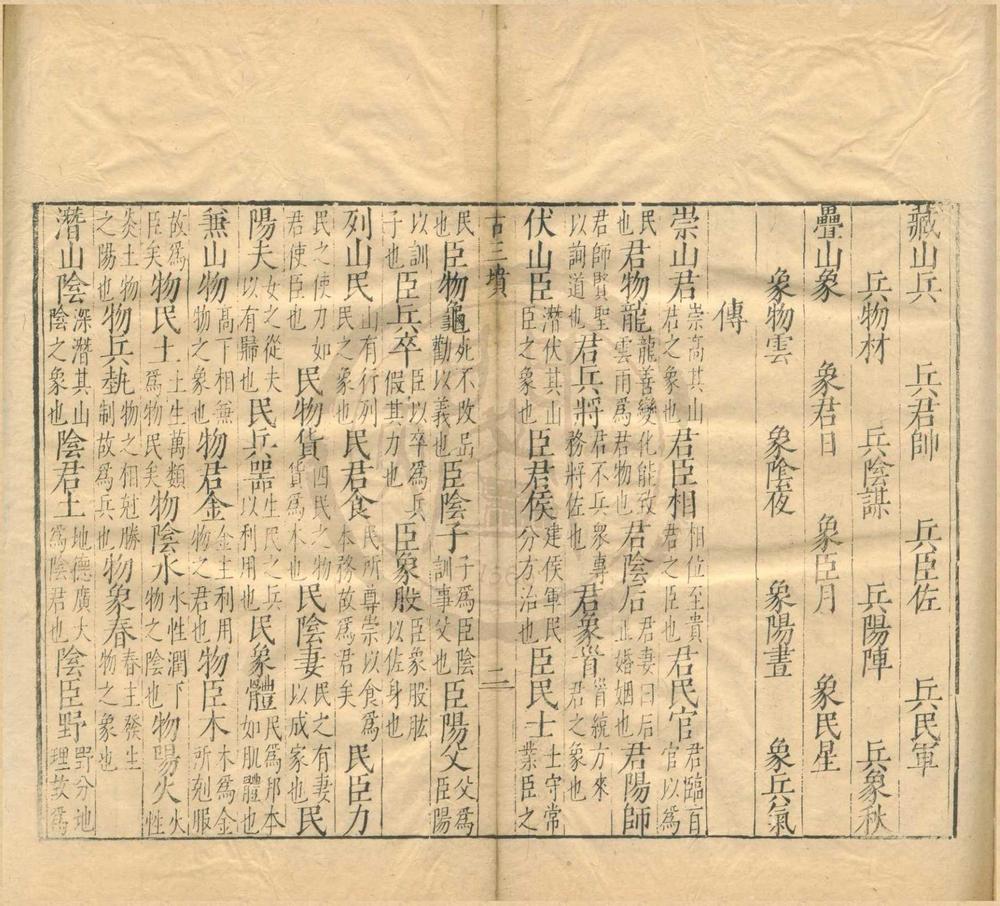 藏山兵　兵君帥　兵臣佐　兵民軍
兵物材　兵陰謀　兵陽陣　兵象秋
疊山象　象君日　象臣月　象民星
象物雲　象陰夜　象陽晝　象兵氣
傳
崇山君崇高其山君之象也君臣相相位至貴君之臣也君民官君臨百官以爲
民也君物龍龍善變化能致雲雨爲君物也君陰后君妻曰后正婚姻也君陽師
君師賢聖以詢道也君兵將君不兵衆專務將佐也君象首首統方來君之象也
伏山臣潛伏其山臣之象也臣君侯建侯軍民分方治也臣民士士守常業臣之
古三墳　二
民也臣物龜死不改岳勸以義也臣陰子子爲臣陰訓事父也臣陽父父爲臣陽
以訓子也臣兵卒臣以卒爲兵假其力也臣象股臣象股肱以佐身也
列山民山有行列民之象也民君食民所尊崇以食爲本務故爲君矣民臣力
民之使力如君使臣也民物貨四民之物貨爲本也民陰妻民之有妻以成家也民
陽夫女之從夫以有歸也民兵器生民之兵以利用也民象體民爲邦本如肌體也
兼山物高下相兼物之象也物君金金主利用物之君也物臣木木爲金所剋服
故爲臣矣物民土土生萬類爲物民矣物陰水水性潤下物之陰也物陽火火性
炎土物之陽也物兵執物之相尅勝制故爲兵也物象春春主發生物之象也
潛山陰深潛其山陰之象也陰君土地德廣大爲陰君也陰臣野野分地理故爲